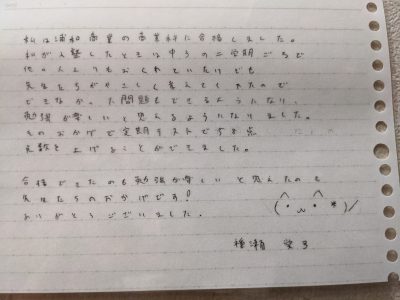 私は浦和商業の商業科に合格しました。
私が入塾したときは中3の二学期ごろで
他の人よりもおくれていたけでも
先生たちがやさしく教えてくれたので
できなかった問題もできるようになり、
勉強が楽しいと思えるようになりました。
そのおかげで定期テストで
点数を上げることができました。
合格できたのも勉強が楽しいと思えたのも
先生たちのおかげです!
ありがとうございました。